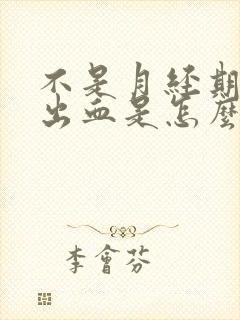 不是月经期
出血是怎麽
李會芬